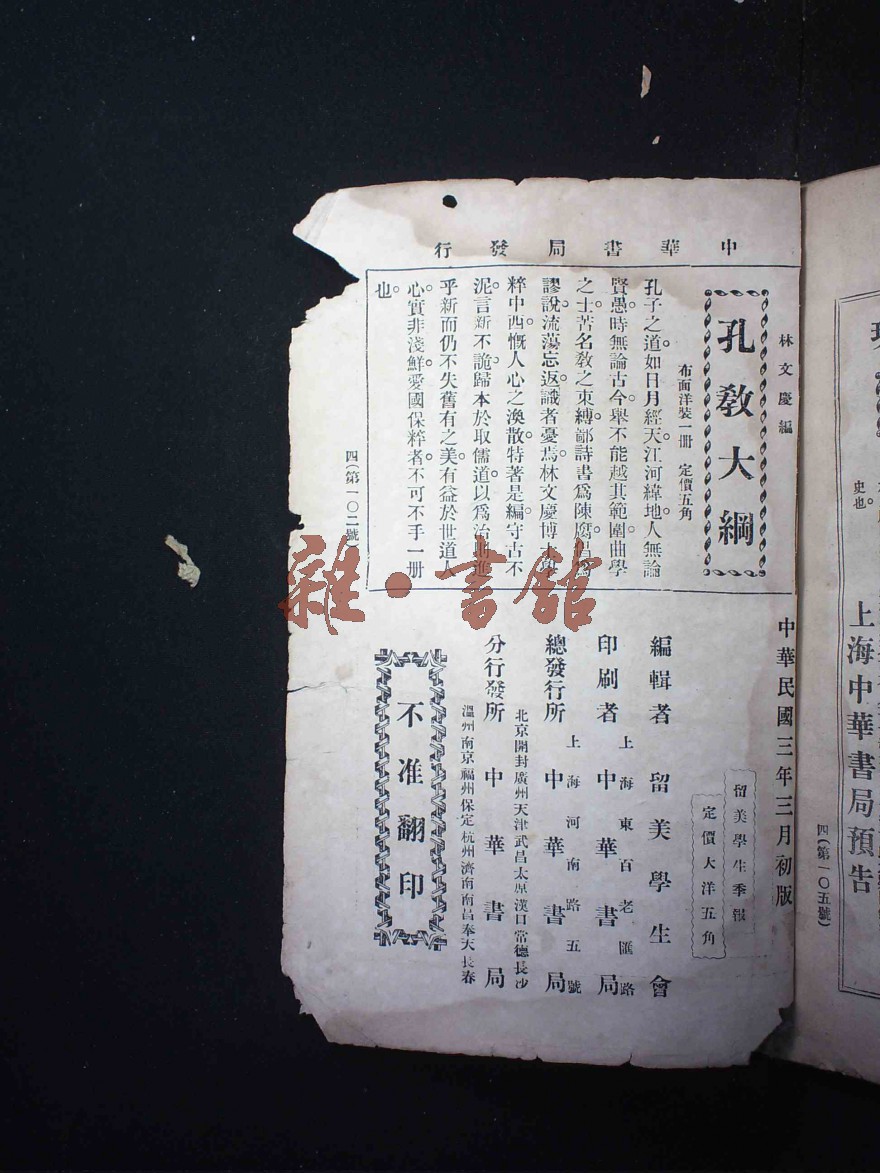 中華書局發行
林文慶編
孔教大綱
布面洋裝一冊 定價五角
孔子之道。如日月經天。江河緯地。人無論
賢愚。時無論古今。舉不能越其範圍。曲學
之士。苦名教之束縛。鄙詩書爲陳腐。
謬說流蕩忘返。識者憂焉。林文慶博士
粹中西。慨人心之渙散。特著是編。守古不
泥。言新不詭。歸本於取儒道以爲治。進
乎新而仍不失舊有之美。有益於世道人
心。實非淺鮮。愛國保粹者。不可不手一册
也。
四(第一〇二號)
中華民國三年三月初版
留美學生季報
定價大洋五角
編輯者 留美學生會
上海東百老匯路
印刷者 中華書局
上海河南路五號
總發行所 中華書局
北京開封廣州天津武昌太原漢口常德長沙
分行發所 中華書局
溫州南京福州保定杭州濟南南昌奉天長春
不准翻印
史也。
上海中華書局預告
四(第一〇五號)
雜·書館